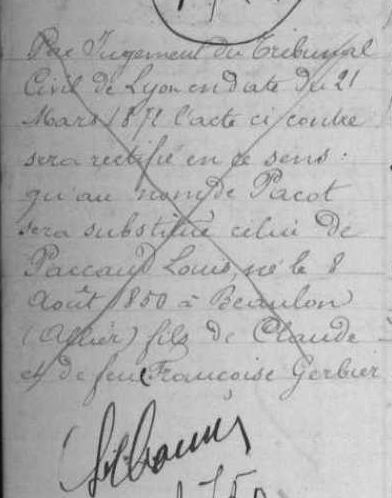 Par Jugement du Tribunal
Civil de Lyon en date du 21
Mars 1871 l'acte ci contre
sera rectifié en ce sens :
qu'au nom de Pacot
sera substitué celui de
Paccaud Louis, né le 8
Août 1850 à Beaulon
(Allier) fils de Claude
et de feue Françoise Gerbier